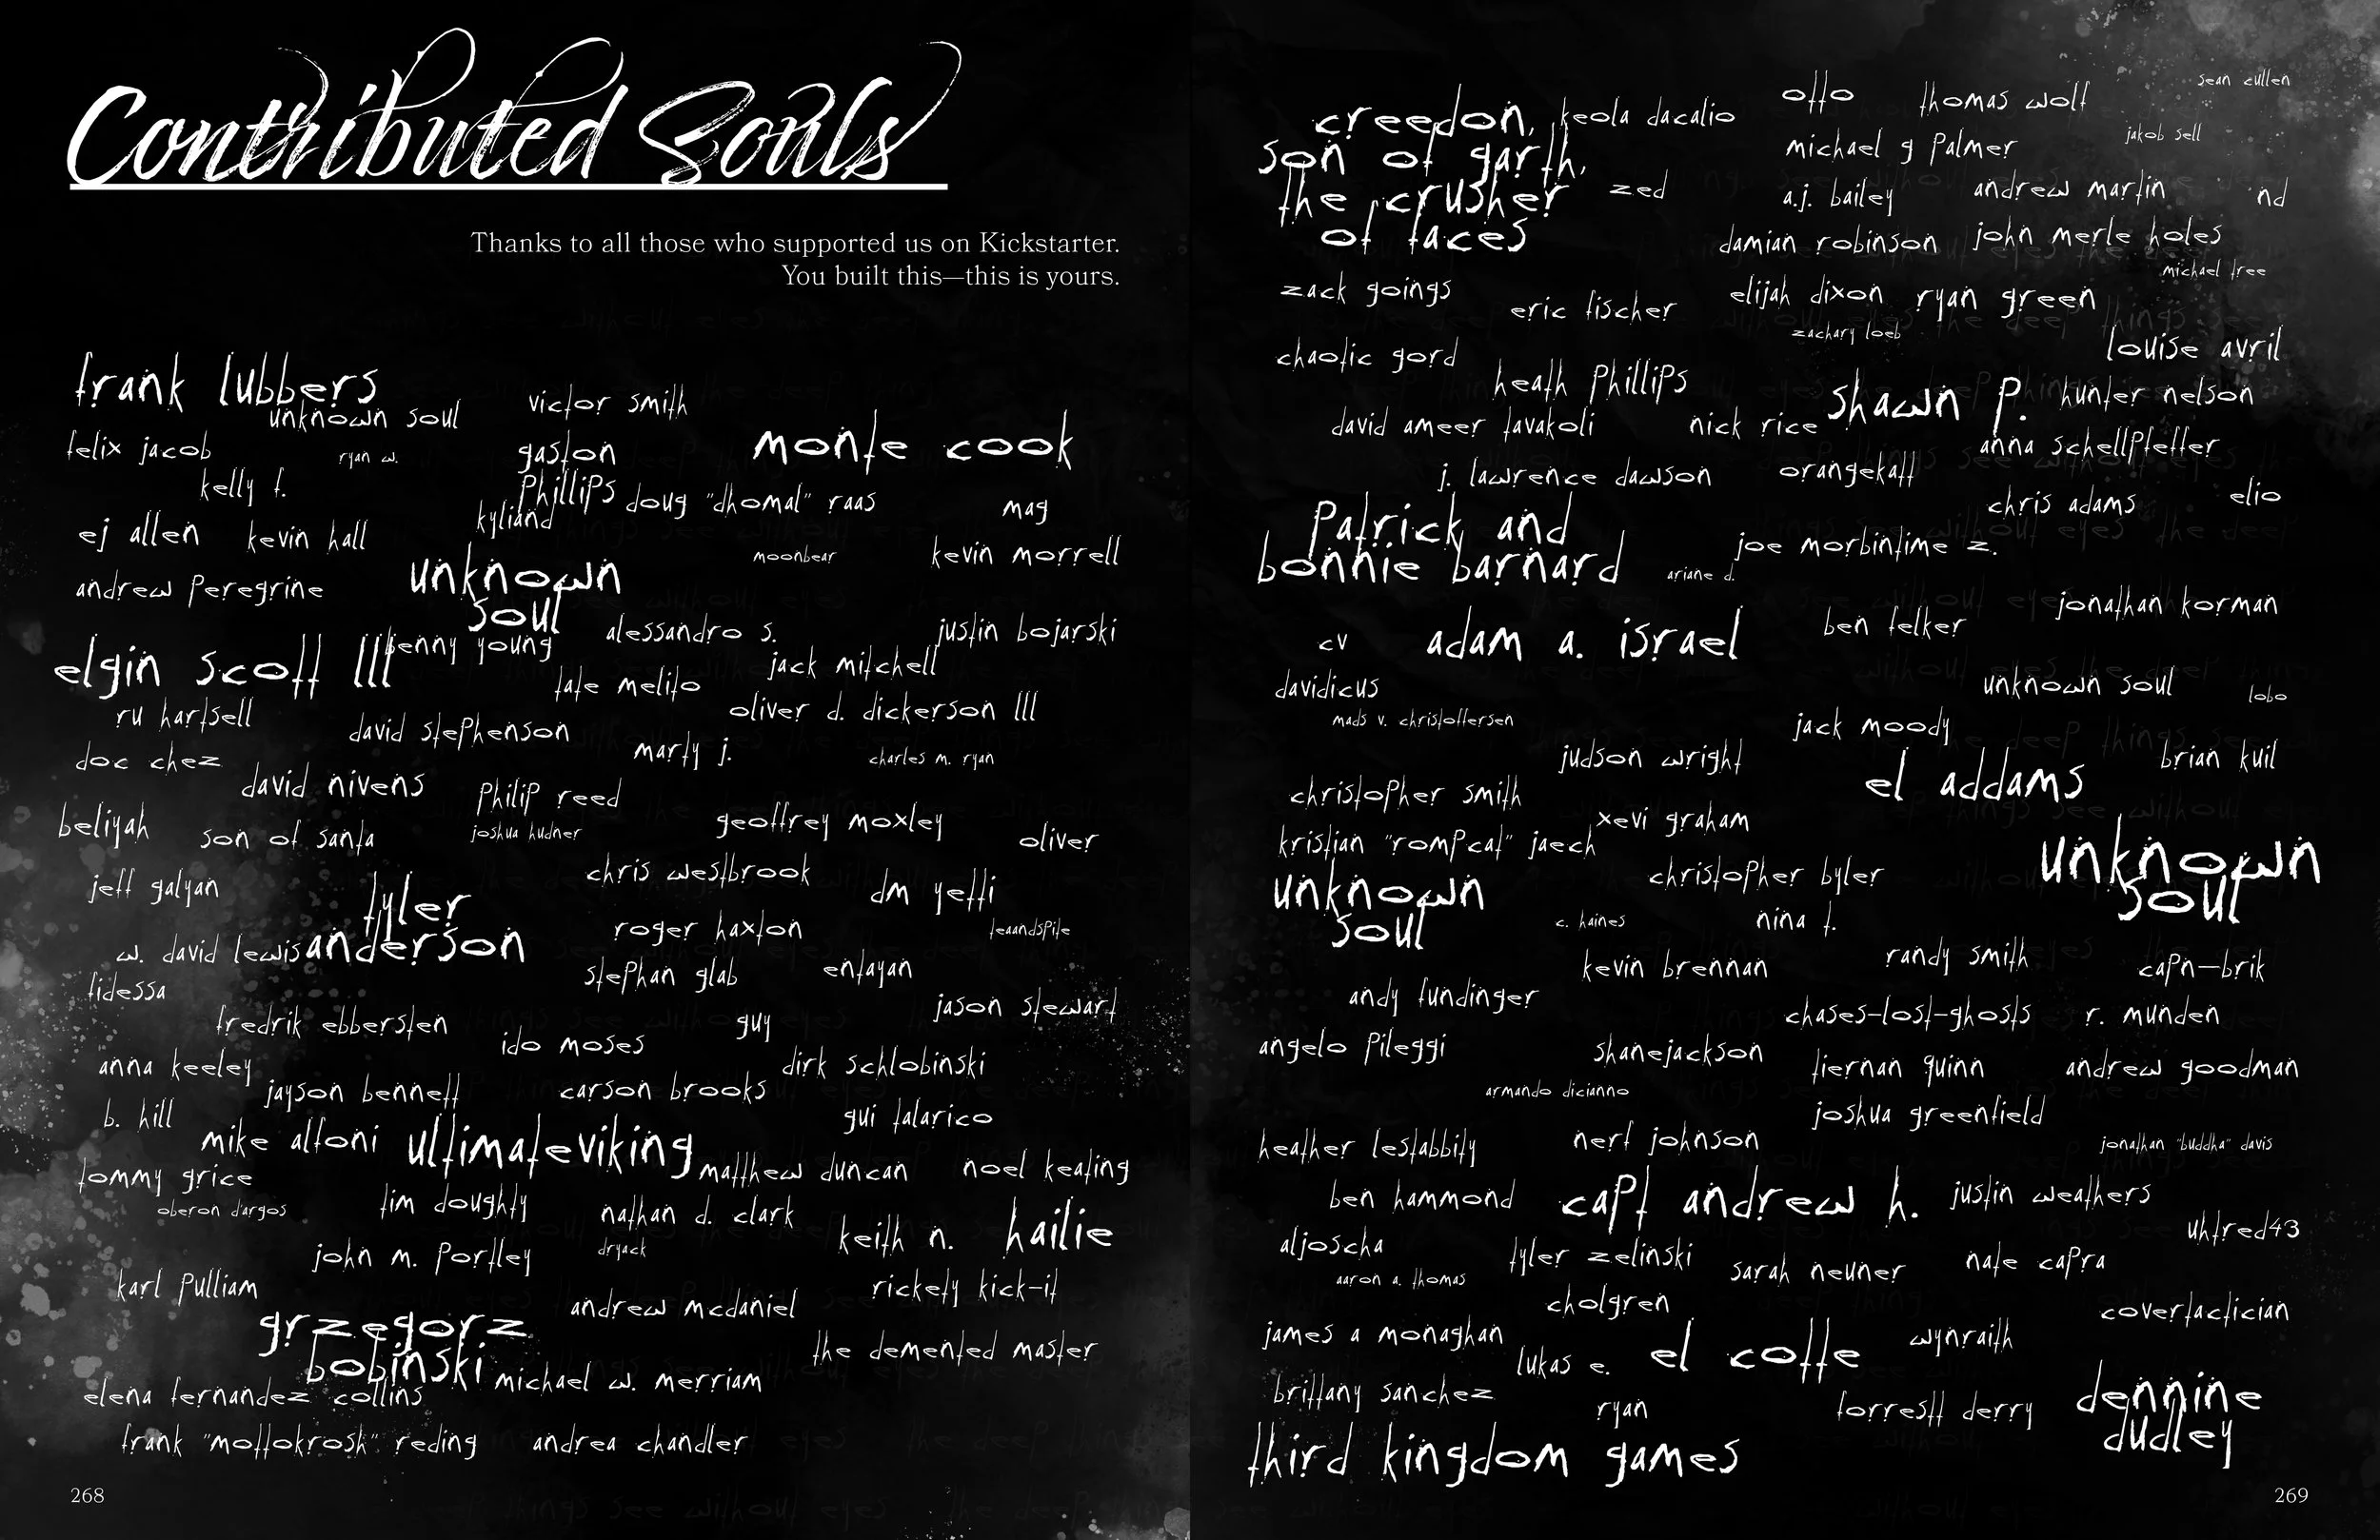 Contributed Souls
Thanks to all those who supported us on Kickstarter.
You built this—this is yours.
frank lubbers
unknown soul
victor smith
felix jacob
ryan w.
gaston
phillips
monte cook
kelly f.
doug "dhomal" raas
mag
kyliand
ej allen
kevin hall
moonbear
kevin morrell
andrew peregrine
unknown
soul
alessandro s.
justin bojarski
elgin scott lll
benny young
jack mitchell
tate melito
ru hartsell
oliver d. dickerson lll
david stephenson
marty j.
doc chez
charles m. ryan
david nivens
philip reed
beliyah
son of santa
joshua hudner
geoffrey moxley
oliver
jeff galyan
chris westbrook
dm yetti
tyler
anderson
w. david lewis
roger haxton
teaandspite
stephan glab
entayan
fidessa
jason stewart
fredrik ebbersten
guy
ido moses
anna keeley
dirk schlobinski
jayson bennett
carson brooks
b. hill
gui talarico
mike alfoni
ultimateviking
matthew duncan
noel keating
tommy grice
oberon d'argos
tim doughty
nathan d. clark
keith n.
hailie
john m. portley
dryack
karl pulliam
rickety kick-it
andrew mcdaniel
grzegorz
bobinski
the demented master
michael w. merriam
elena fernandez collins
frank "mottokrosh" reding
andrea chandler
268
creedon,
son of garth,
the crusher
of faces
keola dacalio
otto
thomas wolf
sean cullen
michael g palmer
jakob sell
zed
a.j. bailey
andrew martin
nd
damian robinson
john merle holes
michael tree
zack goings
eric fischer
elijah dixon
ryan green
zachary loeb
louise avril
chaotic gord
heath phillips
shawn p.
hunter nelson
david ameer tavakoli
nick rice
anna schellpfeffer
j. lawrence dawson
orangekatt
chris adams
elio
patrick and
bonnie barnard
joe morbintime z.
ariane d.
jonathan korman
cv
adam a. israel
ben felker
davidicus
unknown soul
lobo
mads v. christoffersen
jack moody
judson wright
brian kuil
el addams
christopher smith
xevi graham
kristian "rompcat" jaech
unknown
soul
christopher byler
unknown
soul
c. haines
nina f.
kevin brennan
randy smith
capn-brik
andy fundinger
chases-lost-ghosts
r. munden
angelo pileggi
shanejackson
tiernan quinn
andrew goodman
armando dicianno
joshua greenfield
heather lestabbity
nerf johnson
jonathan "buddha" davis
ben hammond
capt andrew h.
justin weathers
uhtred43
aljoscha
tyler zelinski
sarah neuner
nate capra
aaron a. thomas
cholgren
covertactician
james a monaghan
lukas e.
el cotte
wynraith
brittany sanchez
ryan
forrestt derry
dennine
dudley
third kingdom games
269